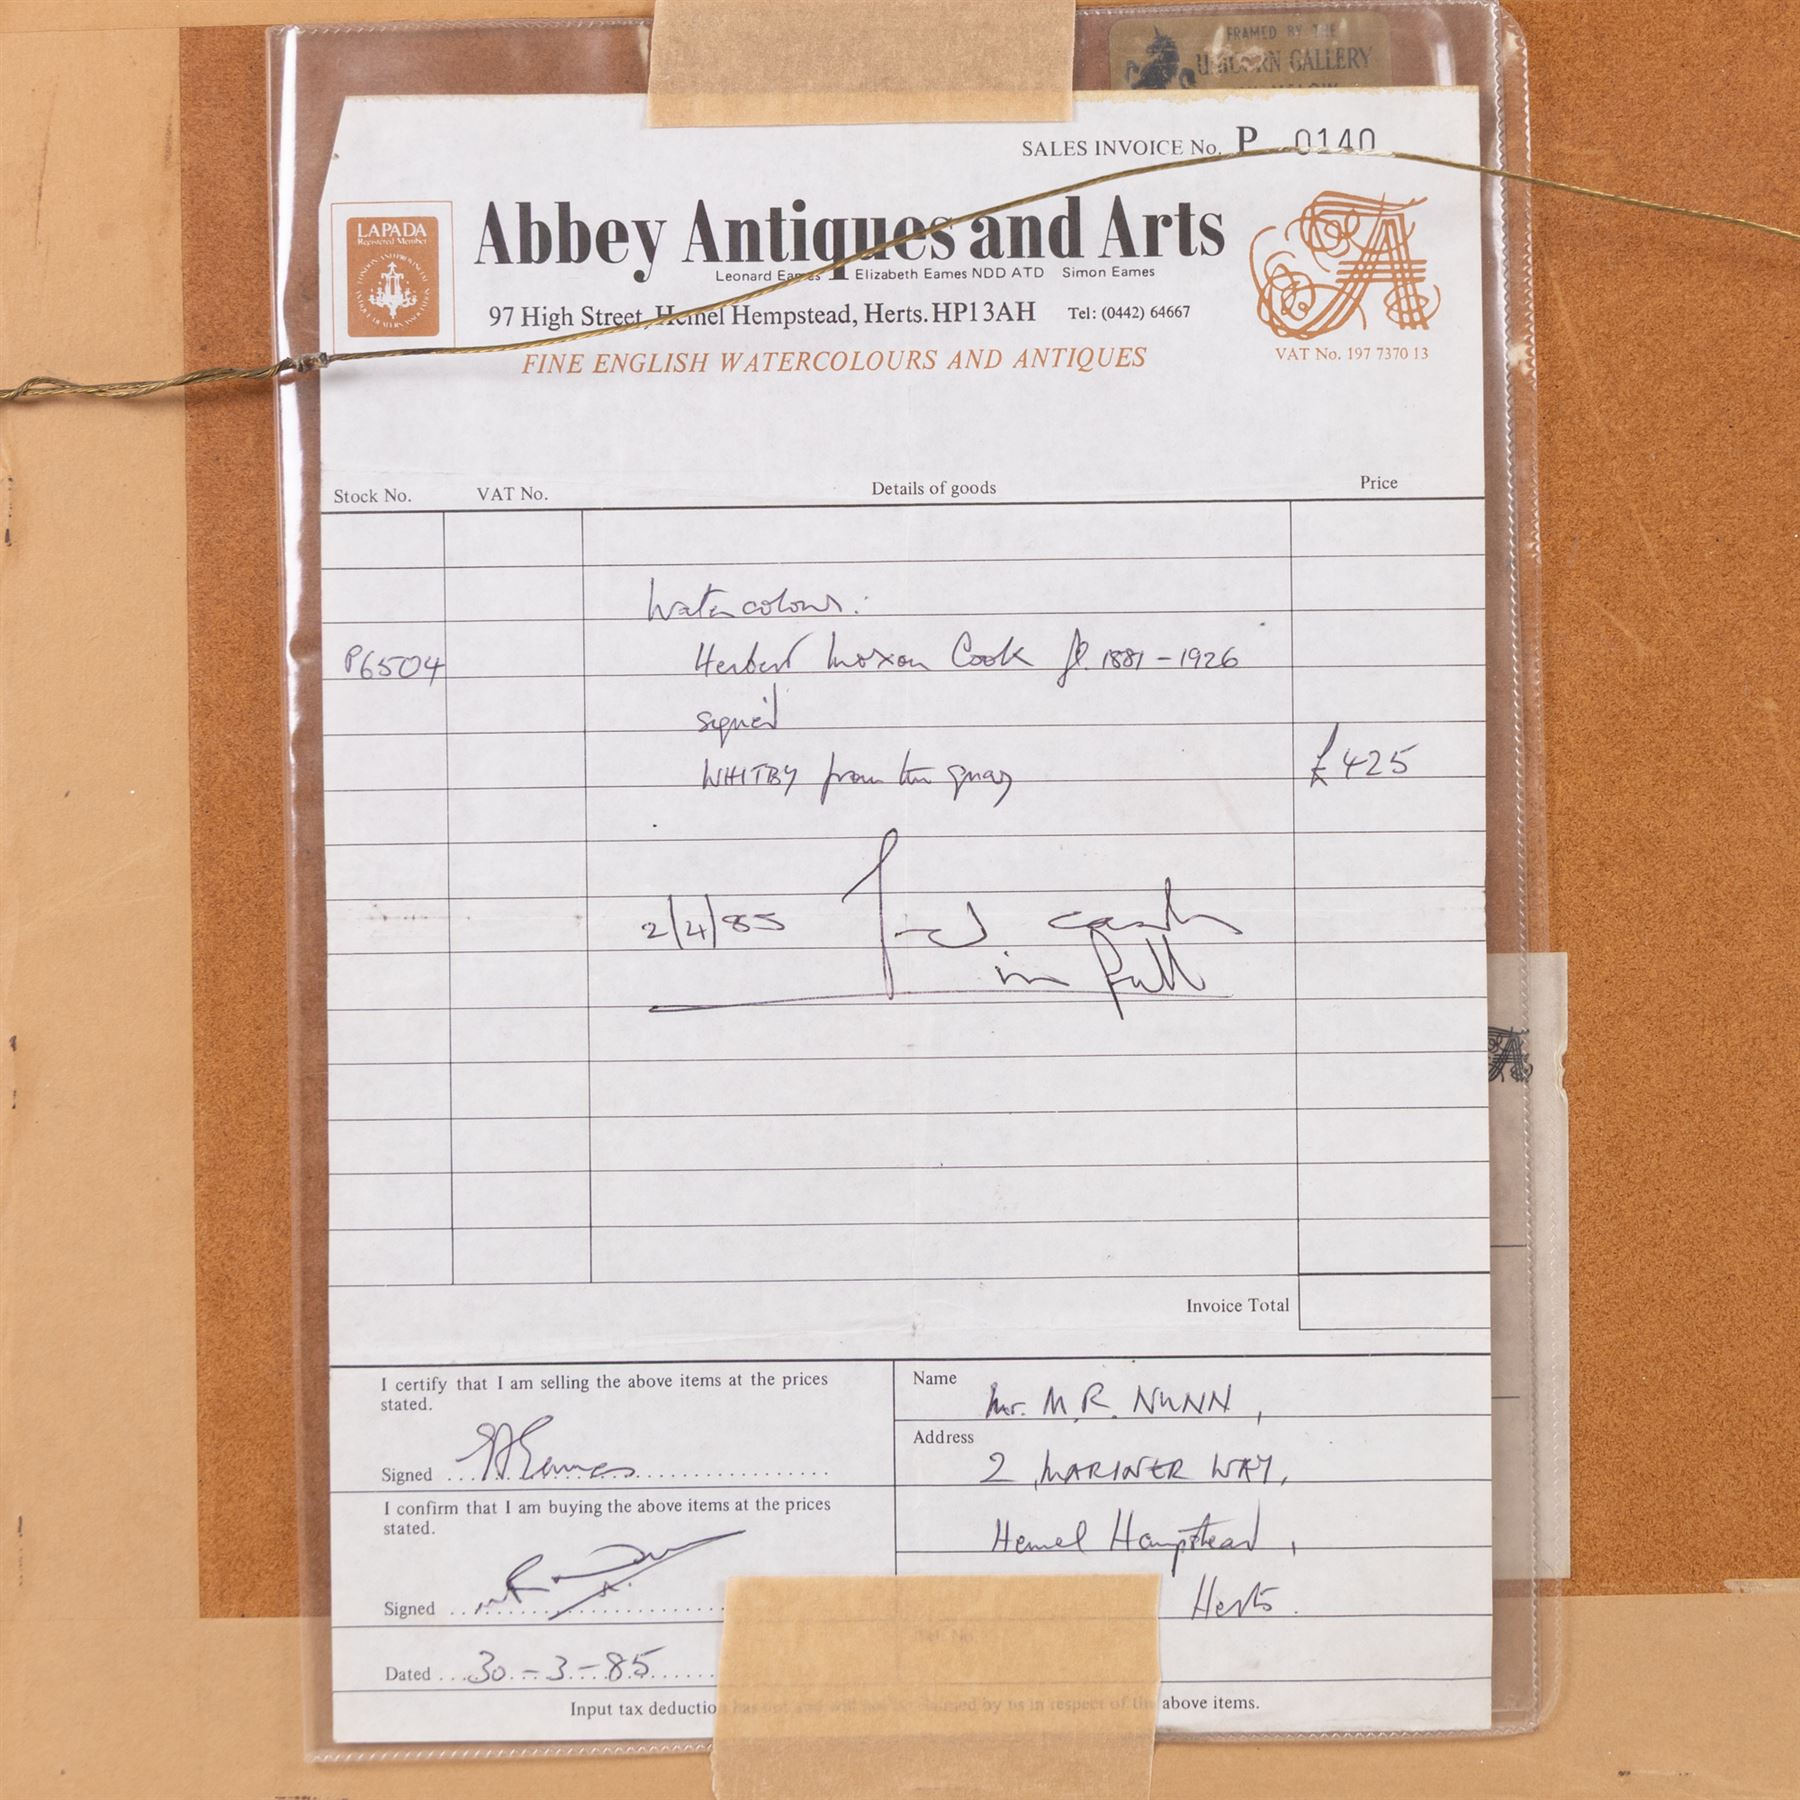 FRAMED BY THE
UNICORN GALLERY
SALES INVOICE No. P 0140
LAPADA
Registered Member
LONDON AND PROVINCIAL ANTIQUE DEALERS ASSOCIATION
Abbey Antiques and Arts
Leonard Eames Elizabeth Eames NDD ATD Simon Eames
97 High Street, Hemel Hempstead, Herts. HP1 3AH Tel: (0442) 64667
FINE ENGLISH WATERCOLOURS AND ANTIQUES
VAT No. 197 7370 13
Stock No. VAT No. Details of goods Price
Watercolour:
P6504 Herbert Moxon Cook fl. 1881-1926
signed
WHITBY from the quay £425
2/4/85 cash
in full
Invoice Total
I certify that I am selling the above items at the prices
stated.
Signed
I confirm that I am buying the above items at the prices
stated.
Signed
Dated 30-3-85
Name Mr. M.R. NUNN,
Address 2, MARINER WAY,
Hemel Hempstead,
Herts.
Tel. No.
Input tax deduction has not and will not be claimed by us in respect of the above items.